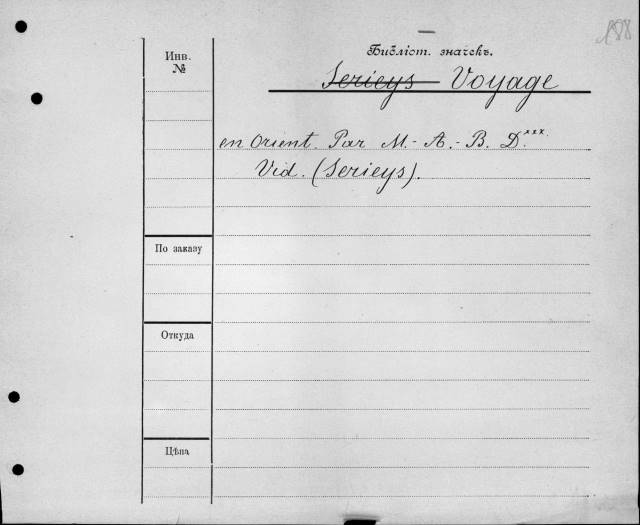 188
Библіот. значекъ.
Инв.
№
Serieys Voyage
en Orient. Par M.-A.-B. D.xxx.
Vid. (Serieys).
По заказу
Откуда
Цѣна